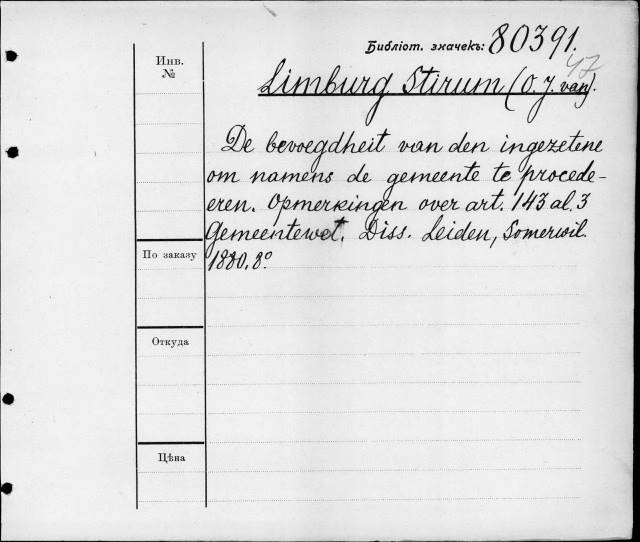 Библіот. значекъ: 80391.
47
Инв. №
Limburg Stirum (O. J. van).
De bevoegdheit van den ingezetene
om namens de gemeente te procede-
eren. Opmerkingen over art. 143 al. 3
Gemeentewet. Diss. Leiden, Somerwil.
1880. 8º.
По заказу
Откуда
Цѣна